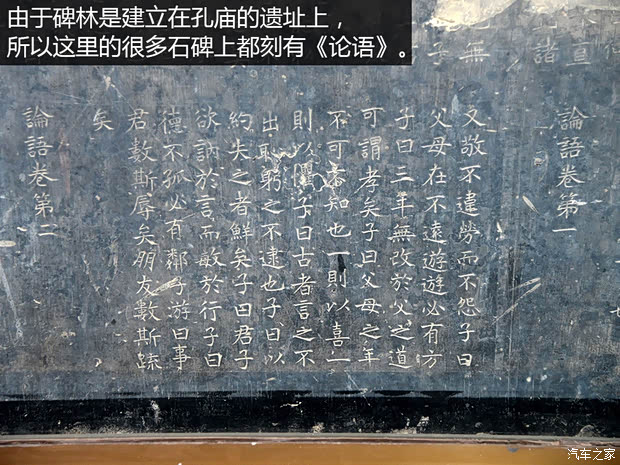 由于碑林是建立在孔庙的遗址上，
所以这里的很多石碑上都刻有《论语》。
論語卷第一
又敬不違勞而不怨子曰
父母在不遠遊遊必有方
子曰三年無改於父之道
可謂孝矣子曰父母之年
不可不知也一則以喜一
則以懼子曰古者言之不
出恥躬之不逮也子曰以
約失之者鮮矣子曰君子
欲訥於言而敏於行子曰
德不孤必有鄰子游曰事
君數斯辱矣朋友數斯疏
矣
論語卷第二
汽车之家